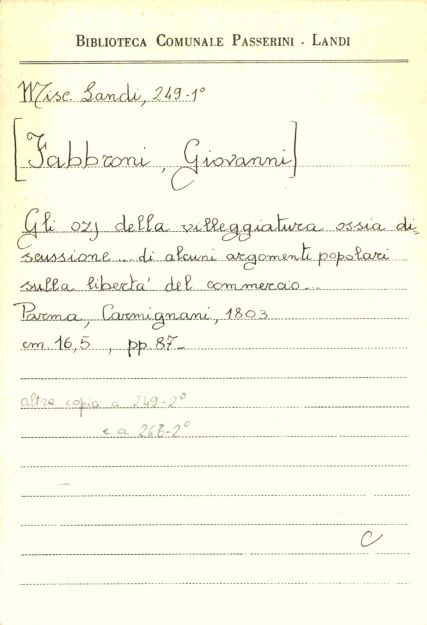 BIBLIOTECA COMUNALE PASSERINI - LANDI
Misc. Landi, 249-1°
[Fabbroni, Giovanni]
Gli ozj della villeggiatura ossia di-
scussione... di alcuni argomenti popolari
sulla libertà del commercio...
Parma, Carmignani, 1803
cm. 16,5, pp. 87-
altra copia a 249-2°
e a 268-2°
C